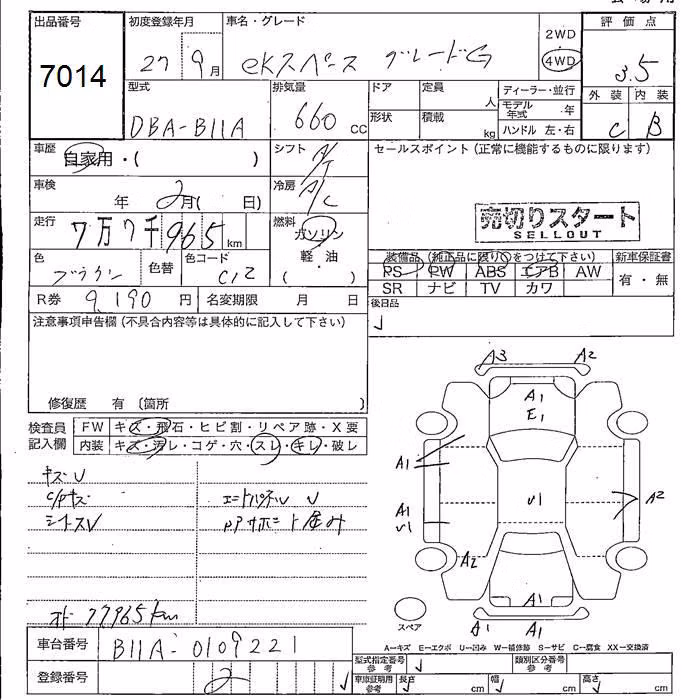 出品番号
7014
初度登録年月
27 9月
車名・グレード
eKスペース グレードG
2WD
4WD
評価点
3.5
外装 内装
C B
型式
DBA-B11A
排気量
660 cc
ドア
形状
定員
人
積載
kg
ディーラー・並行
モデル年式 年
ハンドル 左・右
車歴
自家用・( )
シフト
A/T
セールスポイント (正常に機能するものに限ります)
車検
年 2月( 日)
冷房
A/C
走行
7万7千965km
燃料
ガソリン
軽・油
( )
売切りスタート
SELLOUT
色
ブラウン
色替
色コード
C12
装備品 (純正品に限り○をつけて下さい)
PS PW ABS エアB AW
SR ナビ TV カワ
新車保証書
有・無
R券 9,190円
名変期限 月 日
後日品
注意事項申告欄 (不具合内容等は具体的に記入して下さい)
修復歴 有 〔箇所
検査員記入欄
FW キズ・飛石・ヒビ割・リペア跡・X要
内装 キズ・汚レ・コゲ・穴・スレ・キレ・破レ
キズU
シートスV
オドー77965km
A3 A2
A1
E1
A1
A1
U1
U1
A2
A2
A1
A1 A1
スペア
A-キズ E-エクボ U-凹み W-補修跡 S-サビ C-腐食 XX-交換済
車台番号
B11A-0109221
登録番号
2
型式指定番号
参考
類別区分番号
参考
車庫証明用
参考
長さ cm
幅 cm
高さ cm